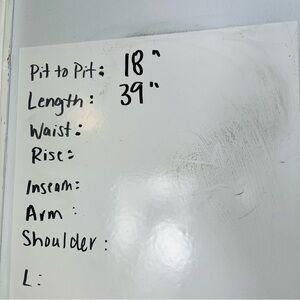 Pit to Pit: 18"
Length: 39"
Waist:
Rise:
Inseam:
Arm :
Shoulder :
L :